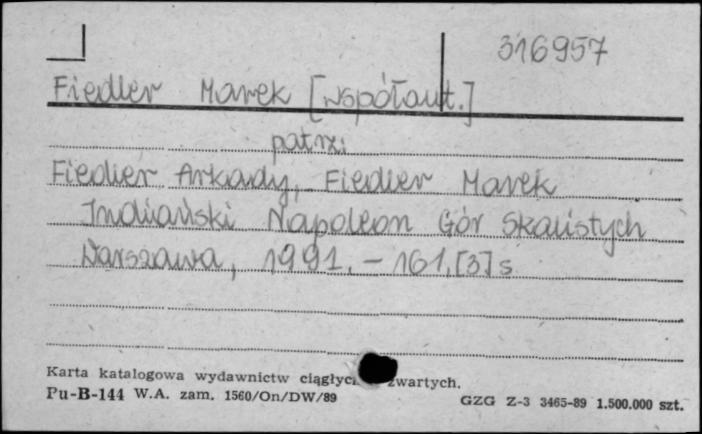 316957
Fiedler Marek [współaut.]
patrz:
Fiedler Arkady, Fiedler Marek
Indiański Napoleon Gór Skalistych
Warszawa, 1991. - 161,[3] s
Karta katalogowa wydawnictw ciągłych zwartych.
Pu-B-144 W.A. zam. 1560/On/DW/89
GZG Z-3 3465-89 1.500.000 szt.